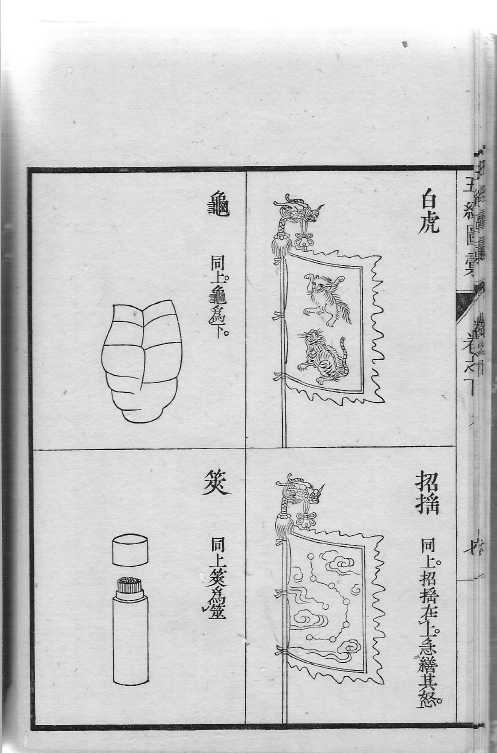 五經圖彙
卷之下
白虎
招搖
同上。招搖在上。急繕其怒。
龜
同上。龜爲卜。
筴
同上筴爲筮